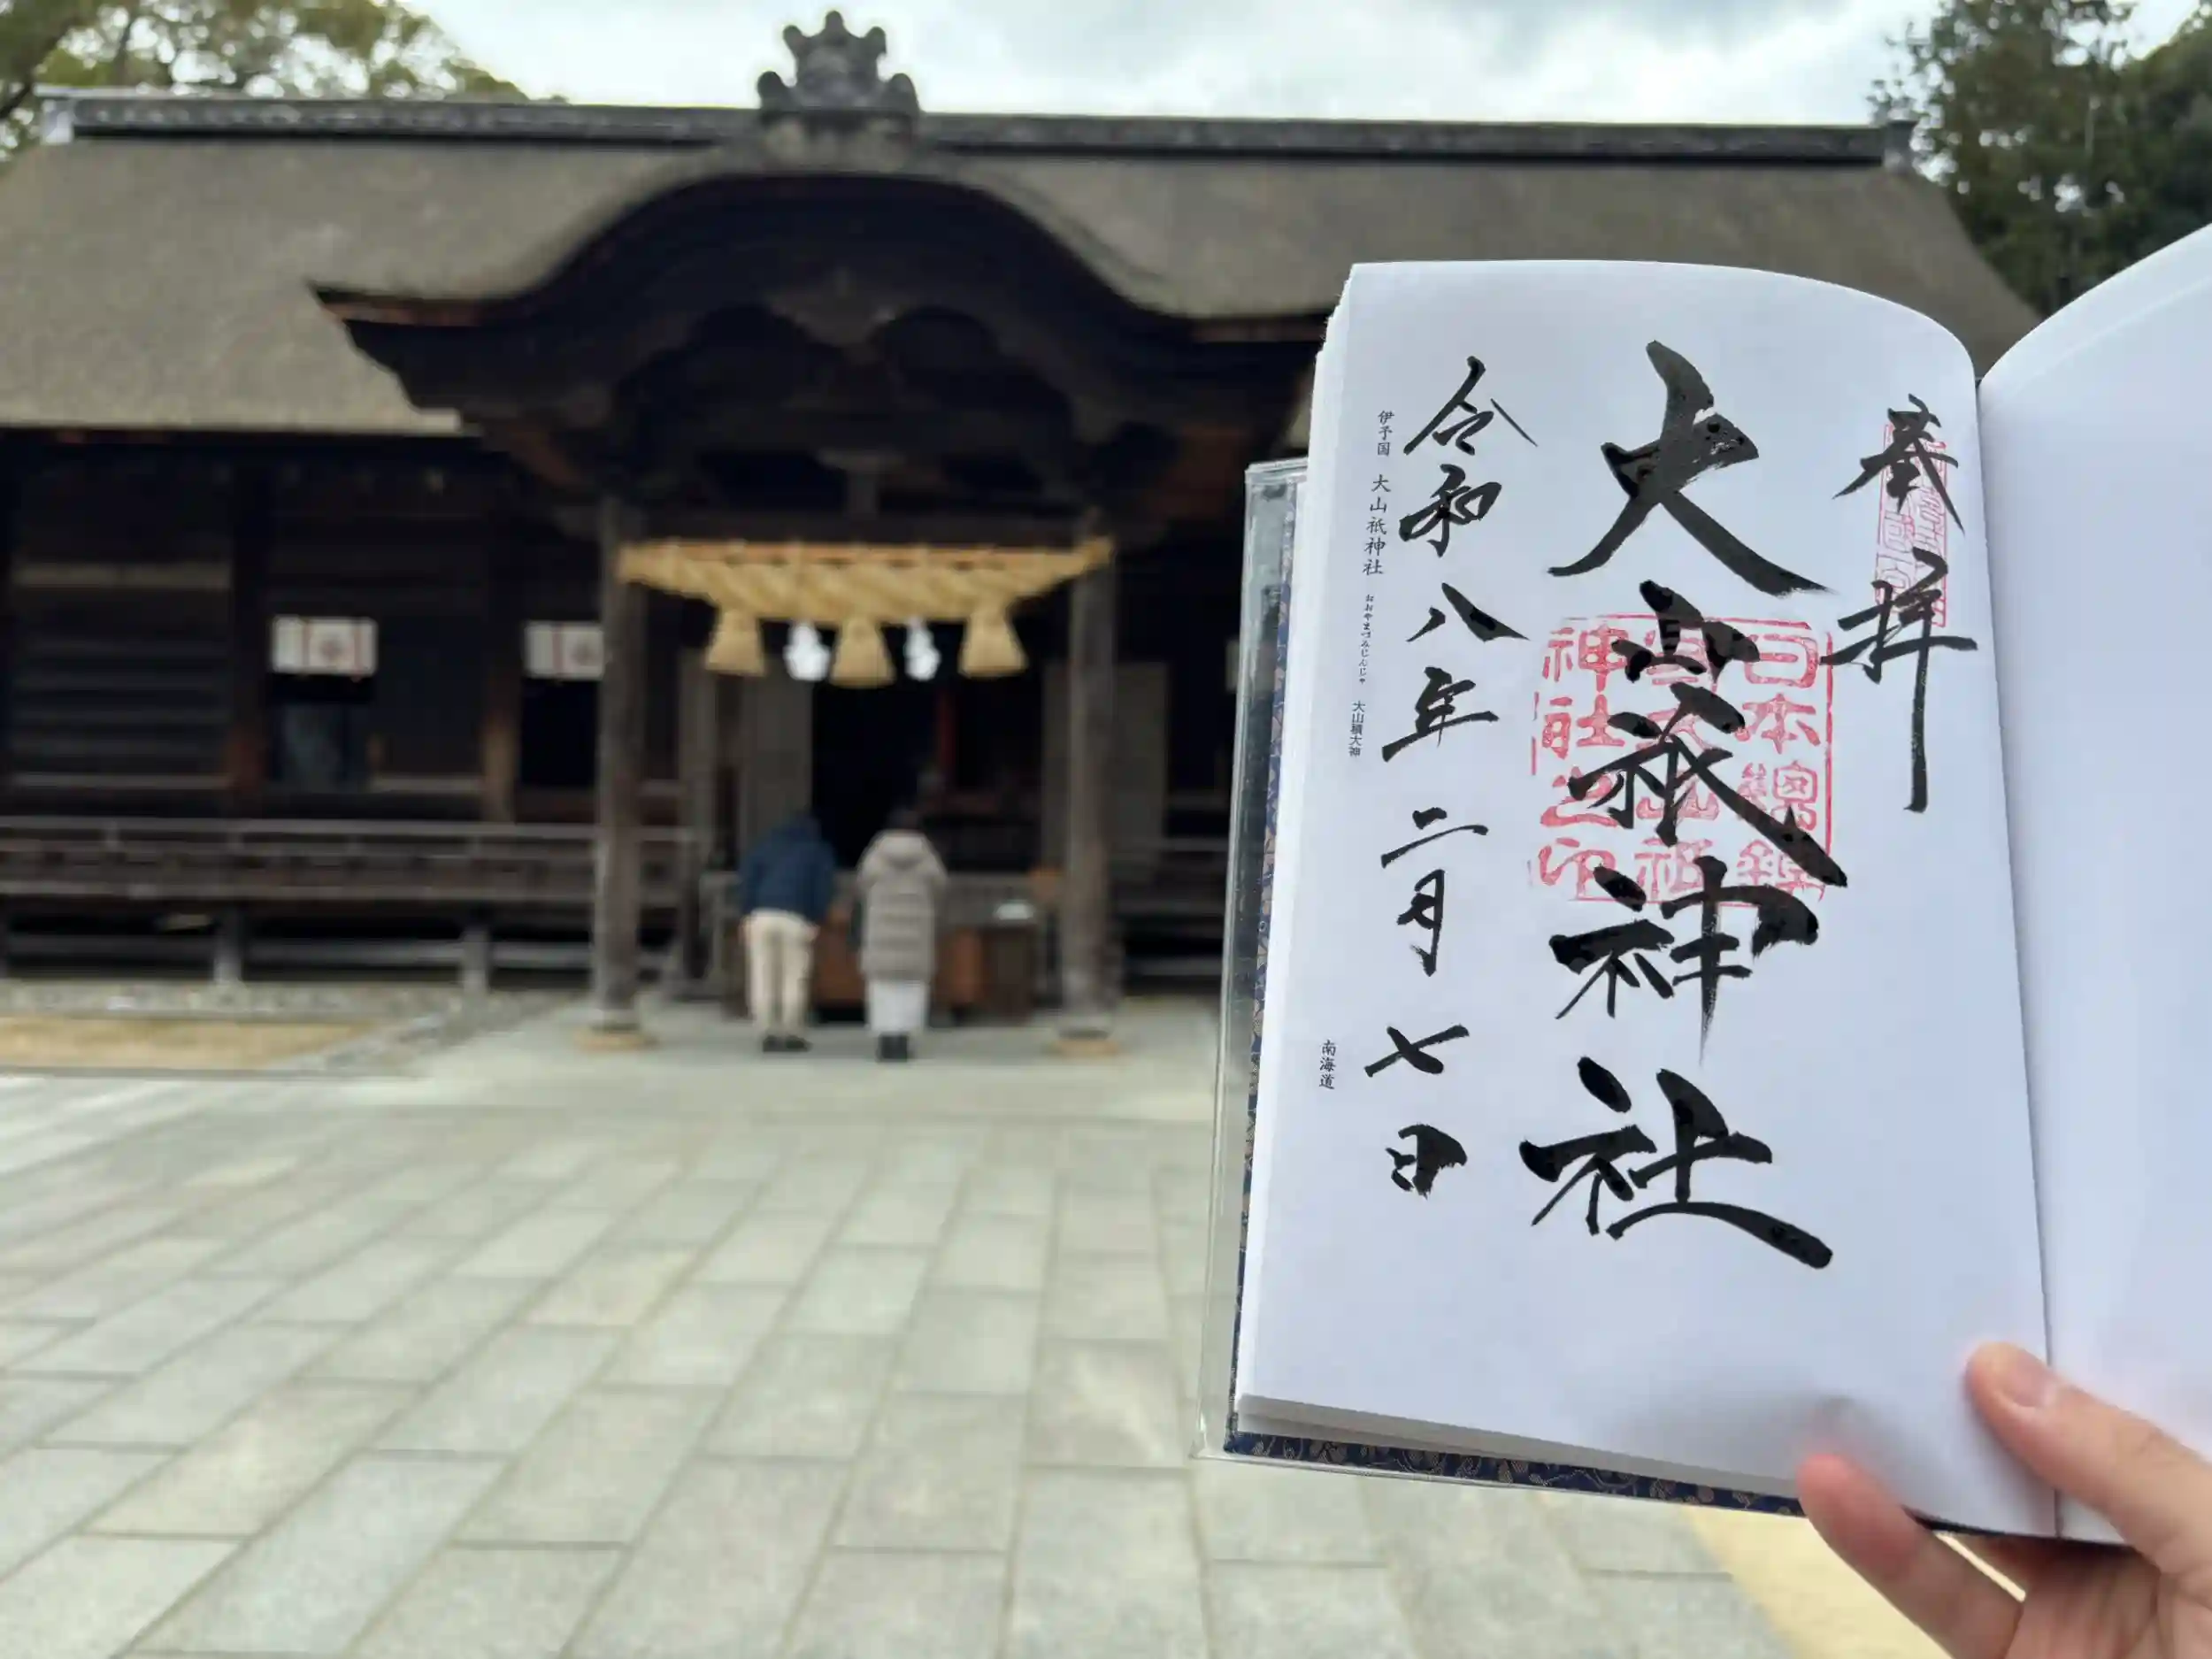 奉拝
大山祇神社
令和八年 二月 七日
日本總鎮
守大山祇
神社之印
伊予国 大山祇神社 おおやまづみじんじゃ 大山積大神
南海道